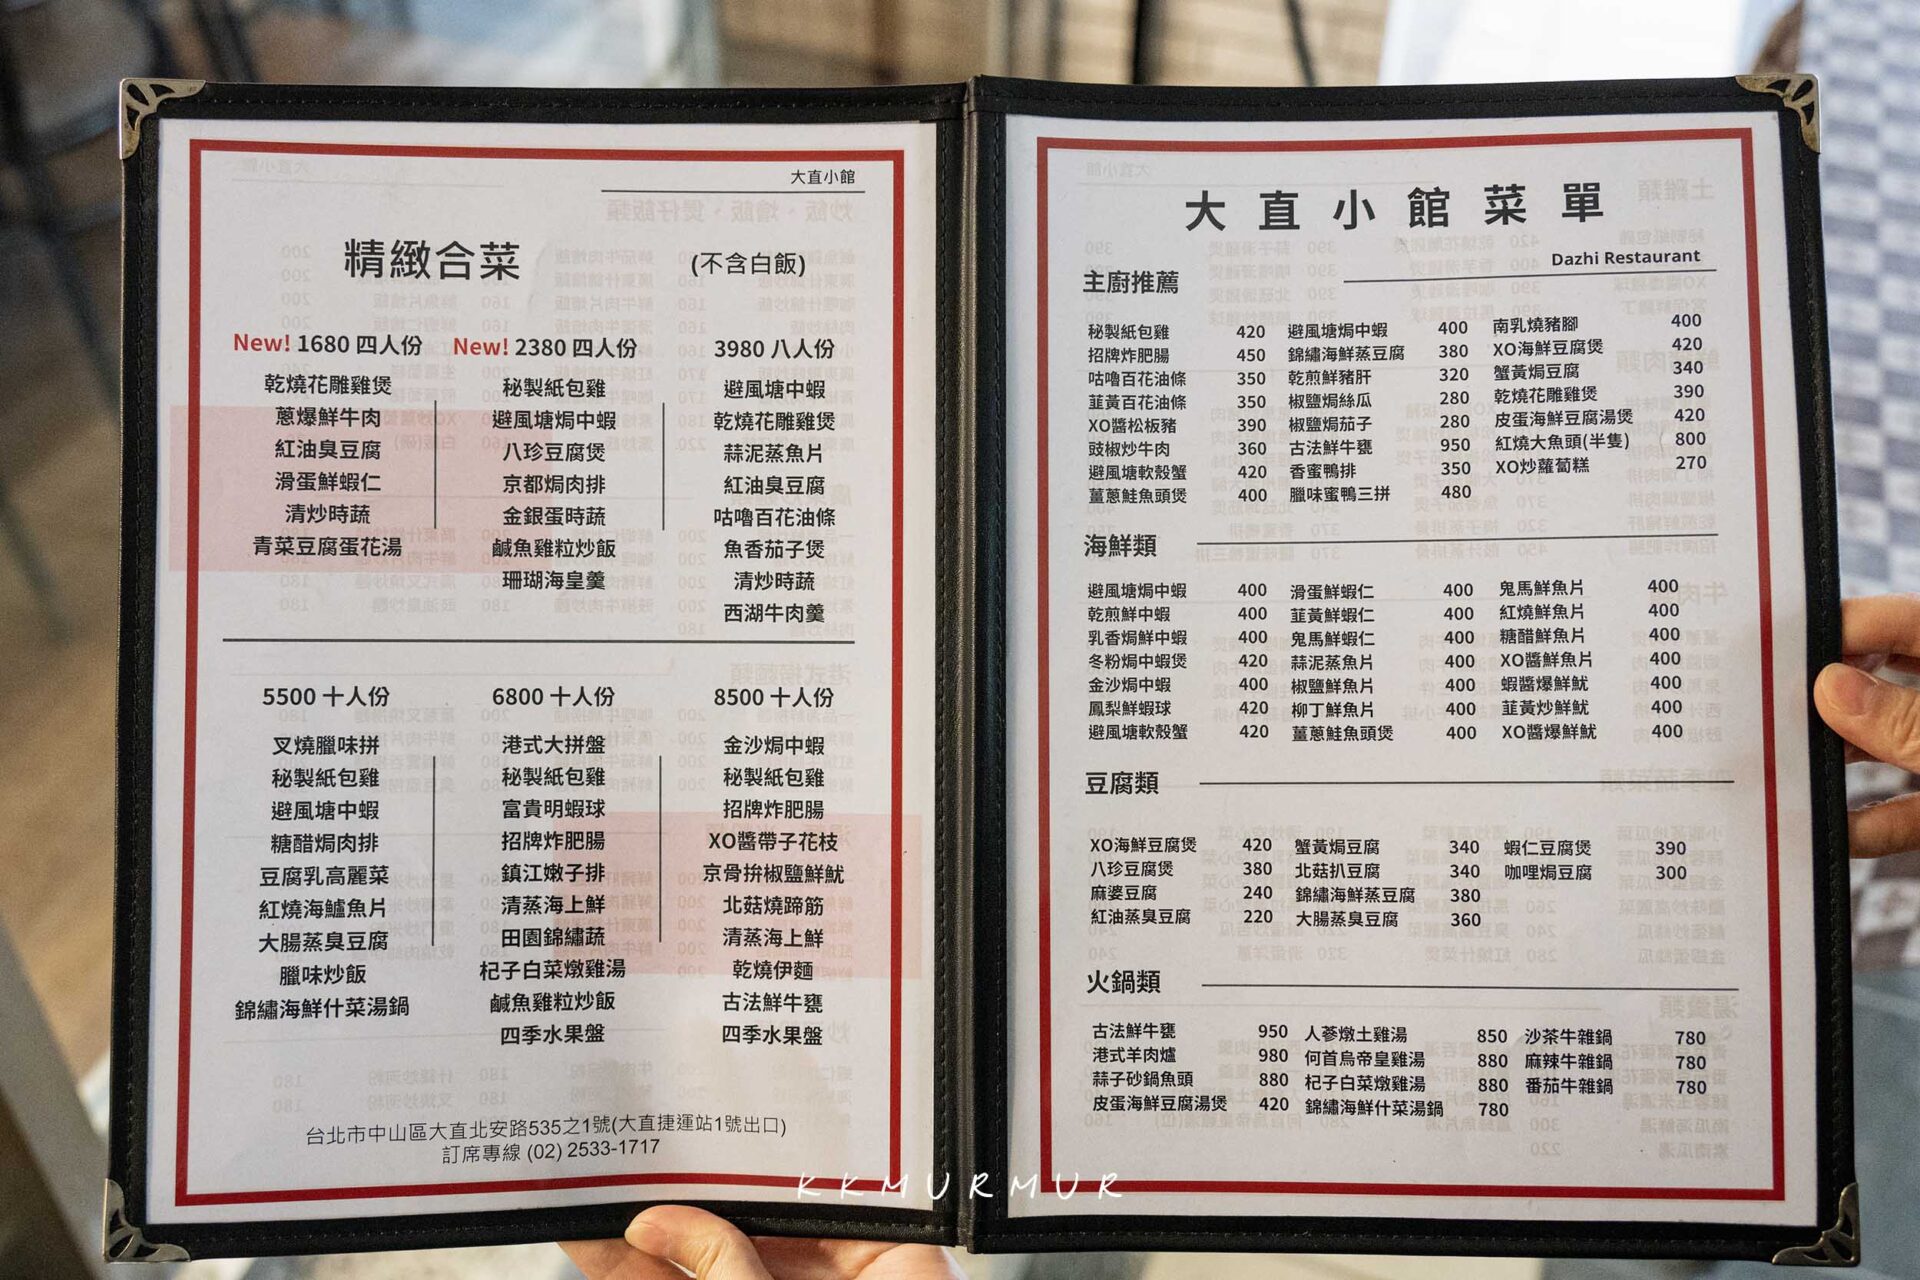 大直小館
精緻合菜 (不含白飯)
New! 1680 四人份
乾燒花雕雞煲
蔥爆鮮牛肉
紅油臭豆腐
滑蛋鮮蝦仁
清炒時蔬
青菜豆腐蛋花湯
New! 2380 四人份
秘製紙包雞
避風塘焗中蝦
八珍豆腐煲
京都焗肉排
金銀蛋時蔬
鹹魚雞粒炒飯
珊瑚海皇羹
3980 八人份
避風塘中蝦
乾燒花雕雞煲
蒜泥蒸魚片
紅油臭豆腐
咕嚕百花油條
魚香茄子煲
清炒時蔬
西湖牛肉羹
5500 十人份
叉燒臘味拼
秘製紙包雞
避風塘中蝦
糖醋焗肉排
豆腐乳高麗菜
紅燒海鱸魚片
大腸蒸臭豆腐
臘味炒飯
錦繡海鮮什菜湯鍋
6800 十人份
港式大拼盤
秘製紙包雞
富貴明蝦球
招牌炸肥腸
鎮江嫩子排
清蒸海上鮮
田園錦繡蔬
杞子白菜燉雞湯
鹹魚雞粒炒飯
四季水果盤
8500 十人份
金沙焗中蝦
秘製紙包雞
招牌炸肥腸
XO醬帶子花枝
京骨拚椒鹽鮮魷
北菇燒蹄筋
清蒸海上鮮
乾燒伊麵
古法鮮牛甕
四季水果盤
台北市中山區大直北安路535之1號(大直捷運站1號出口)
訂席專線 (02) 2533-1717
大直小館菜單
Dazhi Restaurant
主廚推薦
秘製紙包雞 420 避風塘焗中蝦 400 南乳燒豬腳 400
招牌炸肥腸 450 錦繡海鮮蒸豆腐 380 XO海鮮豆腐煲 420
咕嚕百花油條 350 乾煎鮮豬肝 320 蟹黃焗豆腐 340
韮黃百花油條 350 椒鹽焗絲瓜 280 乾燒花雕雞煲 390
XO醬松板豬 390 椒鹽焗茄子 280 皮蛋海鮮豆腐湯煲 420
豉椒炒牛肉 360 古法鮮牛甕 950 紅燒大魚頭(半隻) 800
避風塘軟殼蟹 420 香蜜鴨排 350 XO炒蘿蔔糕 270
薑蔥鮭魚頭煲 400 臘味蜜鴨三拼 480
海鮮類
避風塘焗中蝦 400 滑蛋鮮蝦仁 400 鬼馬鮮魚片 400
乾煎鮮中蝦 400 韮黃鮮蝦仁 400 紅燒鮮魚片 400
乳香焗鮮中蝦 400 鬼馬鮮蝦仁 400 糖醋鮮魚片 400
冬粉焗中蝦煲 420 蒜泥蒸魚片 400 XO醬鮮魚片 400
金沙焗中蝦 400 椒鹽鮮魚片 400 蝦醬爆鮮魷 400
鳳梨鮮蝦球 420 柳丁鮮魚片 400 韮黃炒鮮魷 400
避風塘軟殼蟹 420 薑蔥鮭魚頭煲 400 XO醬爆鮮魷 400
豆腐類
XO海鮮豆腐煲 420 蟹黃焗豆腐 340 蝦仁豆腐煲 390
八珍豆腐煲 380 北菇扒豆腐 340 咖哩焗豆腐 300
麻婆豆腐 240 錦繡海鮮蒸豆腐 380
紅油蒸臭豆腐 220 大腸蒸臭豆腐 360
火鍋類
古法鮮牛甕 950 人蔘燉土雞湯 850 沙茶牛雜鍋 780
港式羊肉爐 980 何首烏帝皇雞湯 880 麻辣牛雜鍋 780
蒜子砂鍋魚頭 880 杞子白菜燉雞湯 880 番茄牛雜鍋 780
皮蛋海鮮豆腐湯煲 420 錦繡海鮮什菜湯鍋 780
KKMURMUR